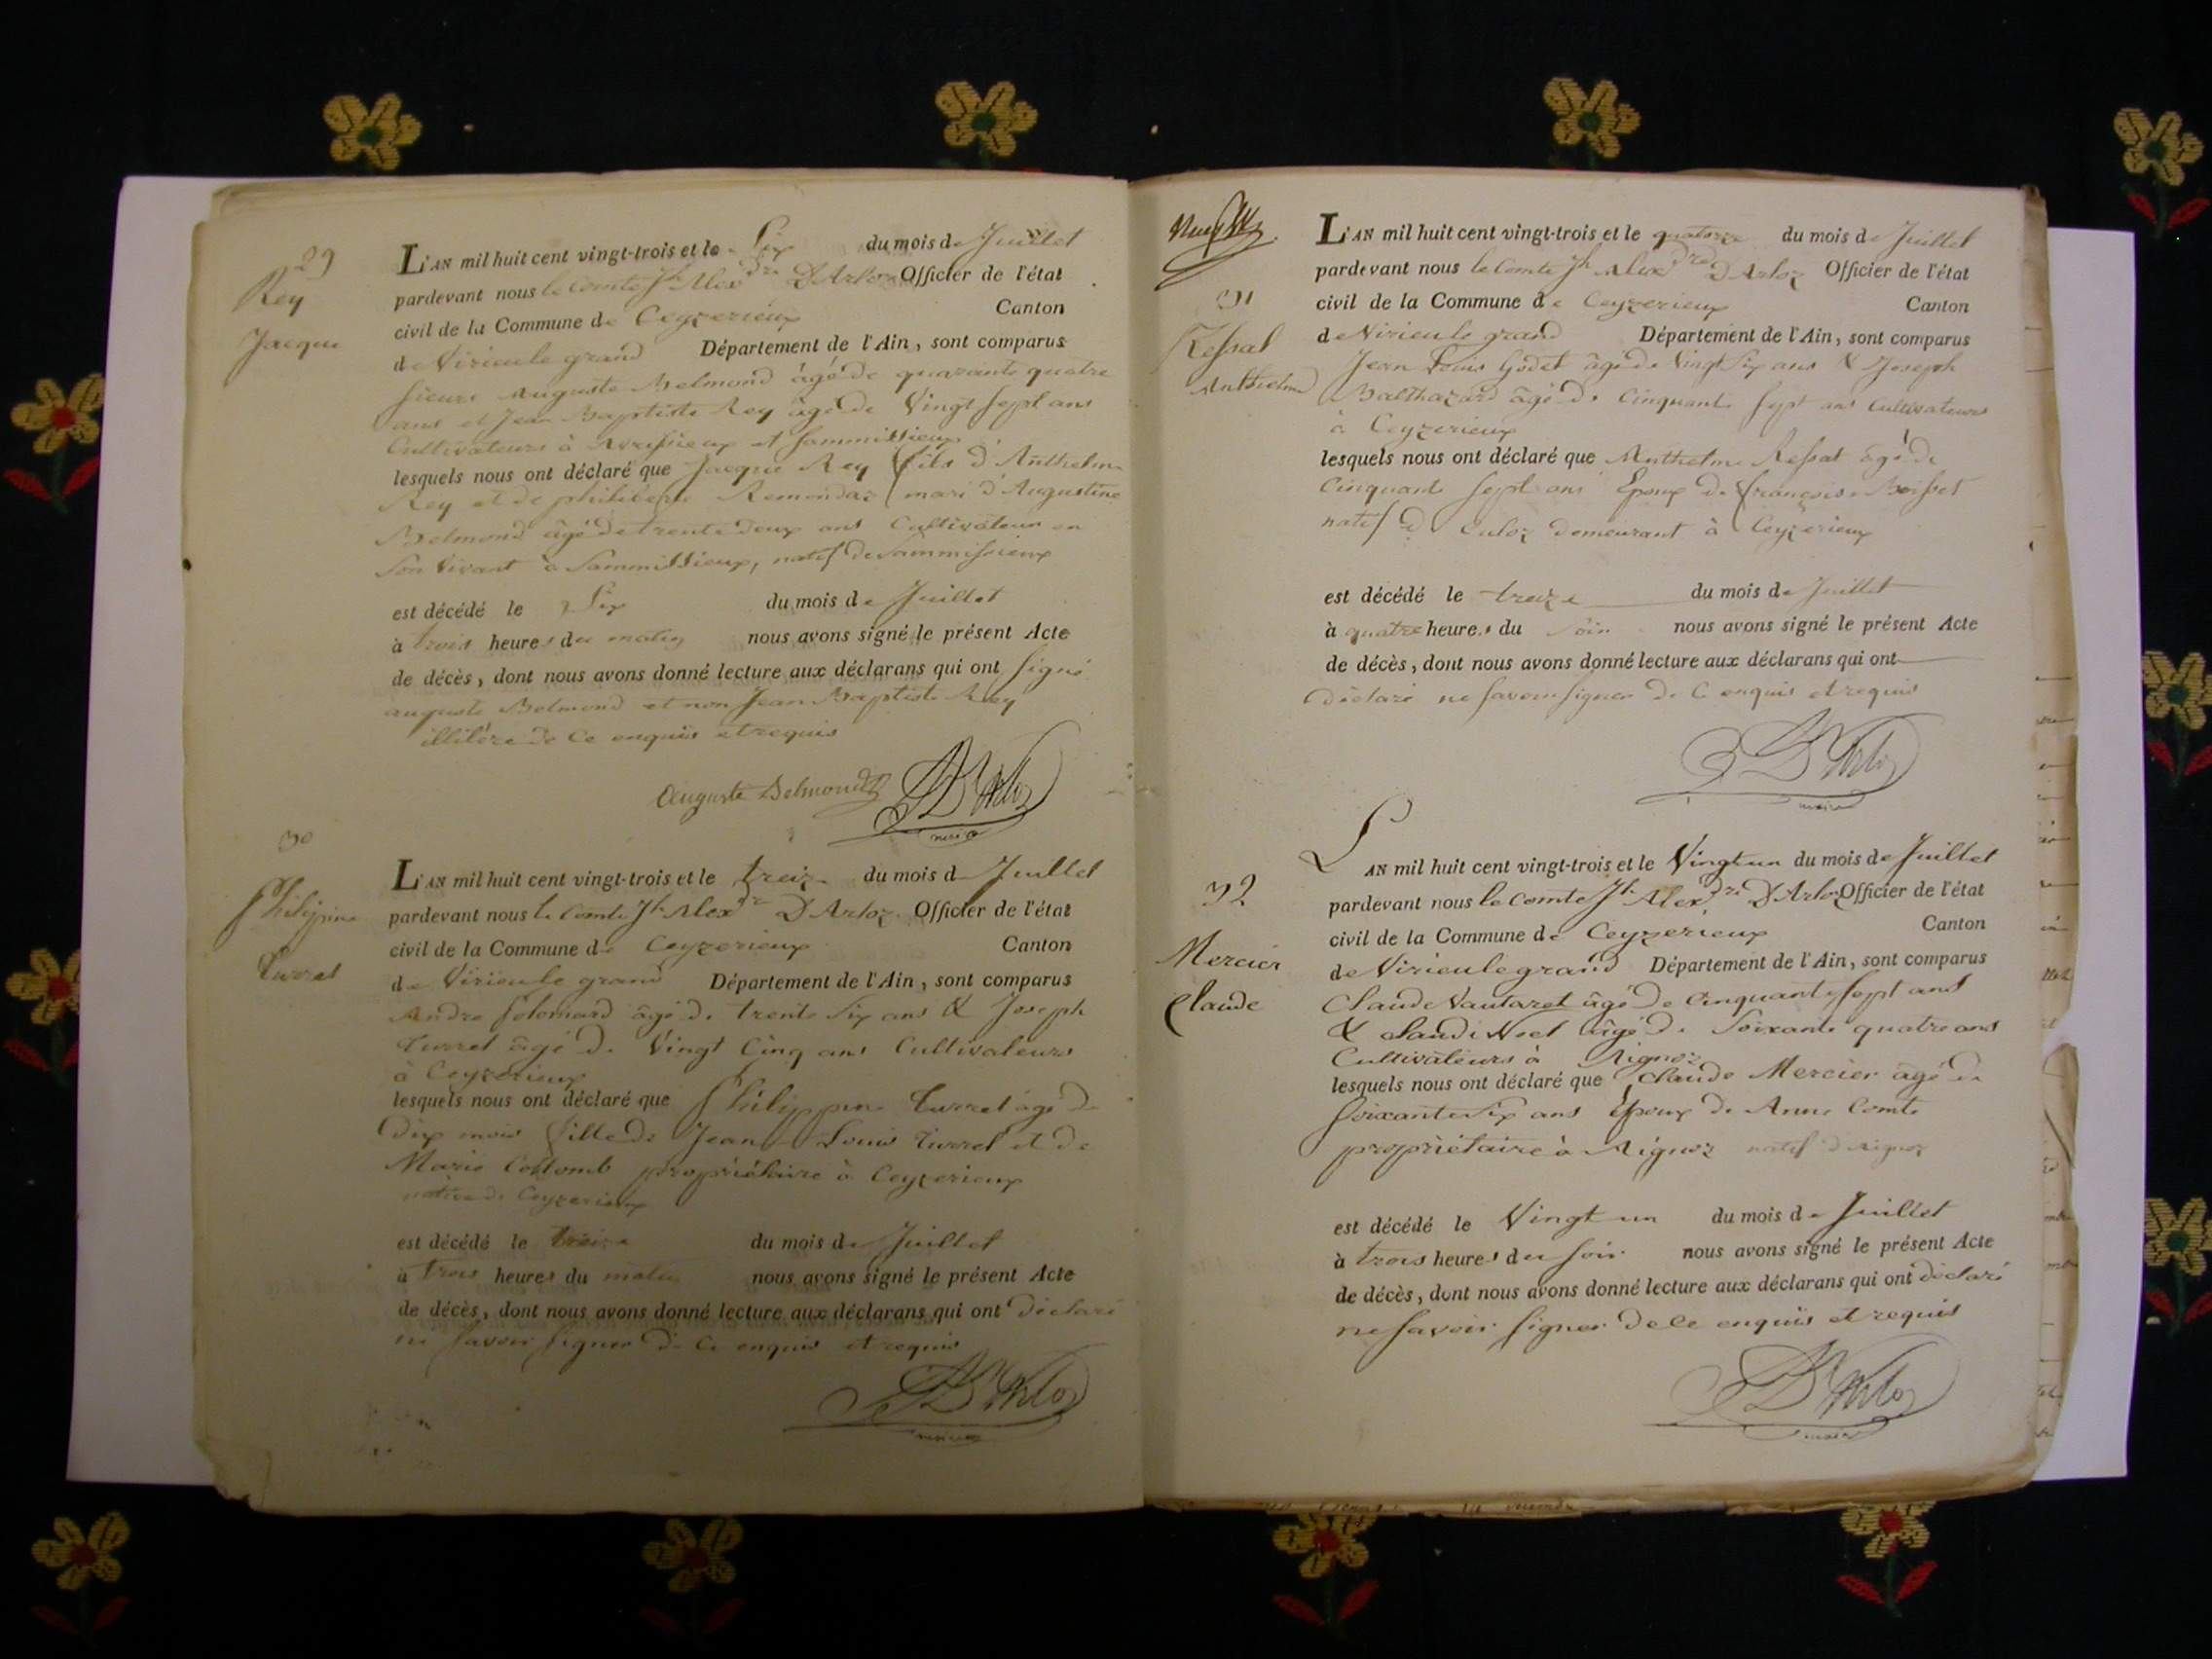 29
Rey
Jacque
L'AN mil huit cent vingt-trois et le Six du mois de Juillet
pardevant nous le Comte Jh Alexdre D'Arloz Officier de l'état
civil de la Commune de Ceyzerieux Canton
de Virieu le grand Département de l'Ain, sont comparus
sieurs Auguste Belmond âgé de quarante quatre
ans et Jean Baptiste Rey âgé de Vingt sept ans
Cultivateurs à Avrissieux et Sammissieux
lesquels nous ont déclaré que Jacque Rey fils d'Anthelme
Rey et de philiberte Remondaz mari d'Augustine
Belmond âgé de trente deux ans Cultivateur en
Son vivant à Sammissieux, natif de Sammissieux
est décédé le Six du mois de Juillet
à trois heures du matin nous avons signé le présent Acte
de décès, dont nous avons donné lecture aux déclarans qui ont signé
auguste Belmond et non Jean Baptiste Rey
illitéré de Ce enquis et requis
Auguste Belmond D'Arloz
maire
30
Philippine
Turrel
L'AN mil huit cent vingt-trois et le treize du mois de Juillet
pardevant nous le Comte Jh Alexdre D'Arloz Officier de l'état
civil de la Commune de Ceyzerieux Canton
de Virieu le grand Département de l'Ain, sont comparus
Andre âgé de trente Six ans & Joseph
Turrel âgé de Vingt Cinq ans Cultivateurs
à Ceyzerieux
lesquels nous ont déclaré que Philippine Turrel âgé de
Dix mois fille de Jean Louis Turrel et de
Marie Collomb propriétaire à Ceyzerieux
native de Ceyzerieux
est décédé le treize du mois de Juillet
à trois heures du matin nous avons signé le présent Acte
de décès, dont nous avons donné lecture aux déclarans qui ont déclaré
ne savoir signer de Ce enquis et requis
D'Arloz
maire
31
Ressat
Anthelme
L'AN mil huit cent vingt-trois et le quatorze du mois de Juillet
pardevant nous le Comte Jh Alexdre D'Arloz Officier de l'état
civil de la Commune de Ceyzerieux Canton
de Virieu le grand Département de l'Ain, sont comparus
Jean Louis Godet âgé de Vingt Six ans & Joseph
Balthazard âgé de Cinquante sept ans Cultivateurs
à Ceyzerieux
lesquels nous ont déclaré que Anthelme Ressat âgé de
Cinquante sept ans Epoux de françoise Boisset
natif de Culoz demeurant à Ceyzerieux
est décédé le treize du mois de Juillet
à quatre heures du Soir nous avons signé le présent Acte
de décès, dont nous avons donné lecture aux déclarans qui ont
Déclaré ne savoir signer de Ce enquis et requis
D'Arloz
maire
32
Mercier
Claude
L'AN mil huit cent vingt-trois et le Vingt un du mois de Juillet
pardevant nous le Comte Jh Alexdre D'Arloz Officier de l'état
civil de la Commune de Ceyzerieux Canton
de Virieu le grand Département de l'Ain, sont comparus
Claude Vautaret âgé de Cinquante sept ans
& Claude Noel âgé de Soixante quatre ans
Cultivateurs à Aignoz
lesquels nous ont déclaré que Claude Mercier âgé de
Soixante Six ans Epoux de Anne Comte
propriétaire à Aignoz natif d'Aignoz
est décédé le Vingt un du mois de Juillet
à trois heures du soir nous avons signé le présent Acte
de décès, dont nous avons donné lecture aux déclarans qui ont déclaré
ne savoir signer de Ce enquis et requis
D'Arloz
maire